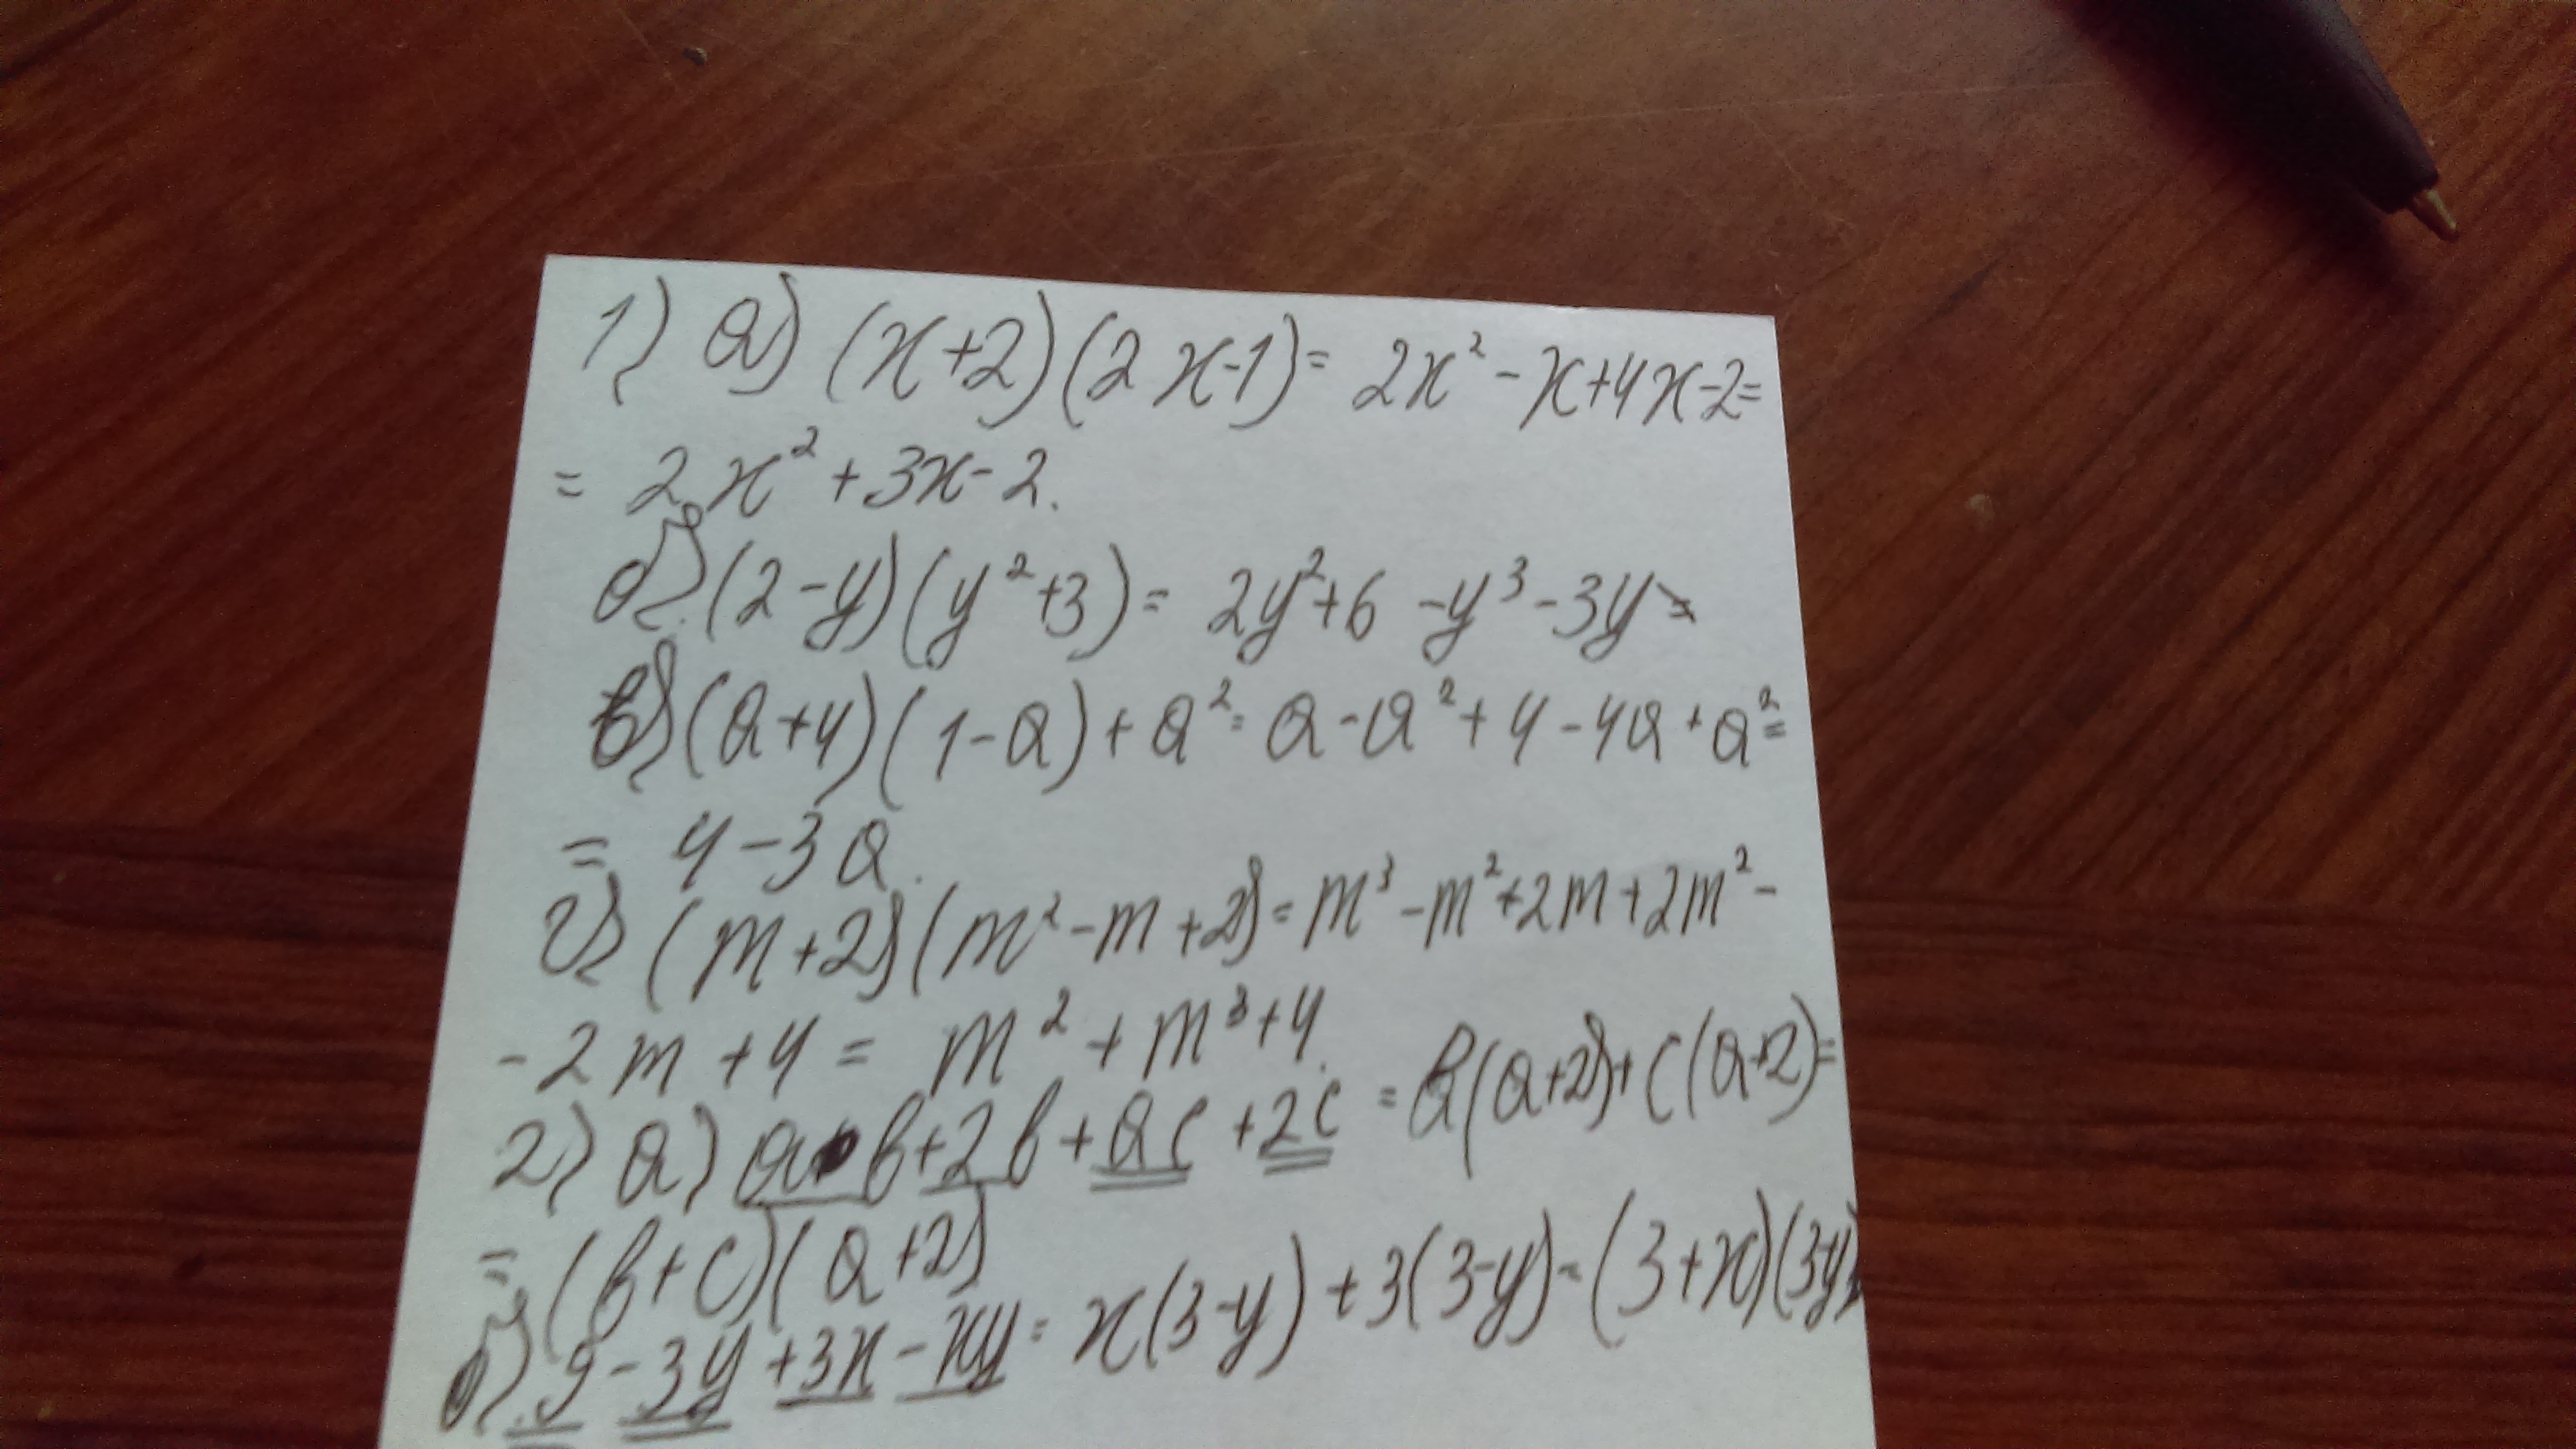 1) а) (x+2)(2x-1)= 2x²-x+4x-2=
= 2x²+3x-2.
б) (2-y)(y²+3)= 2y²+6-y³-3y=
в) (a+4)(1-a)+a²= a-a²+4-4a+a²=
= 4-3a.
г) (m+2)(m²-m+2)= m³-m²+2m+2m²-
-2m+4= m²+m³+4.
2) а) ab+2b+ac+2c = b(a+2)+c(a+2)=
= (b+c)(a+2)
б) 9-3y+3x-xy= x(3-y)+3(3-y)=(3+x)(3-y)